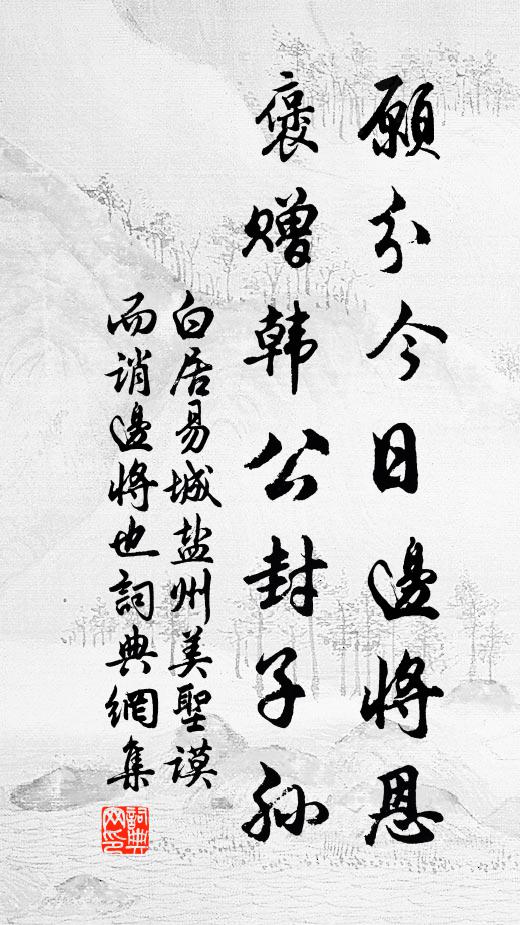 願分今日邊將恩
褒贈韓公封子孫
白居易城盐州美聖謨
而誚邊將也詞典網集
詞典
网印